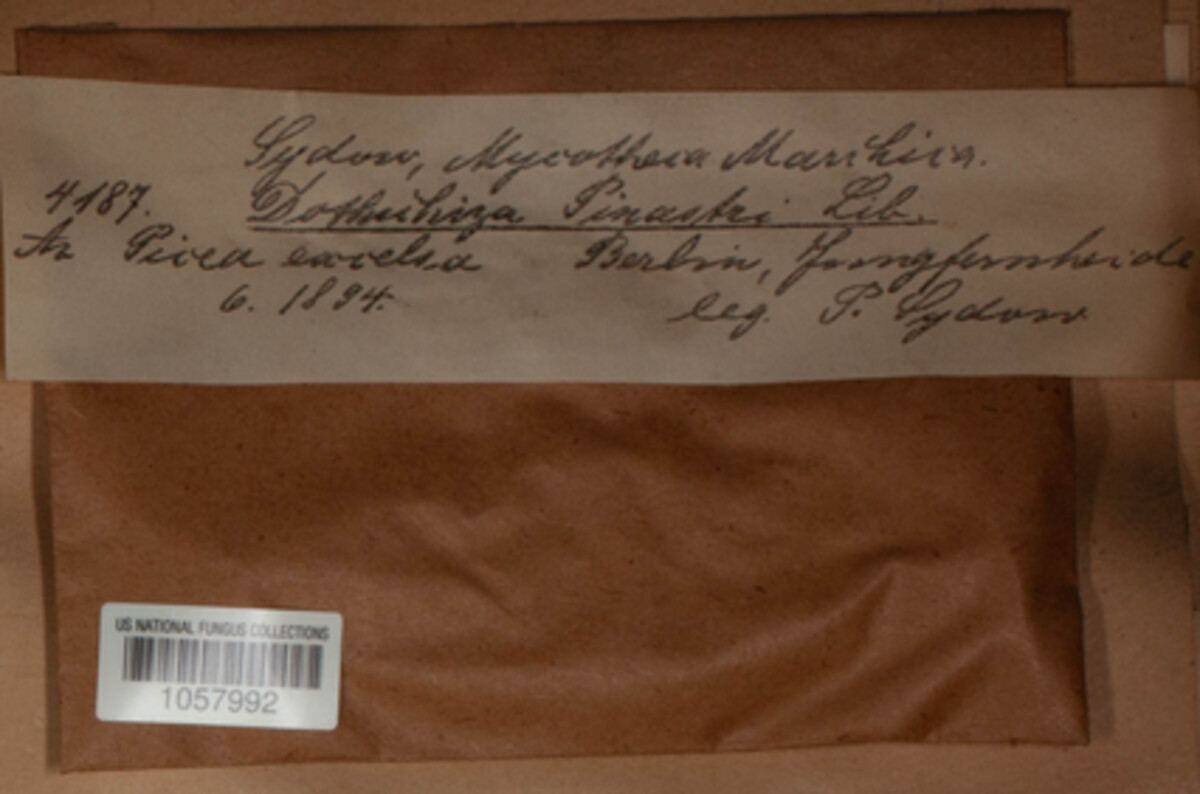 Sydow, Mycotheca Marchica.
4187. Dothichiza Pinastri Lib.
An Picea excelsa Berlin, Jungfernheide
6. 1894. leg. P. Sydow
US NATIONAL FUNGUS COLLECTIONS
1057992